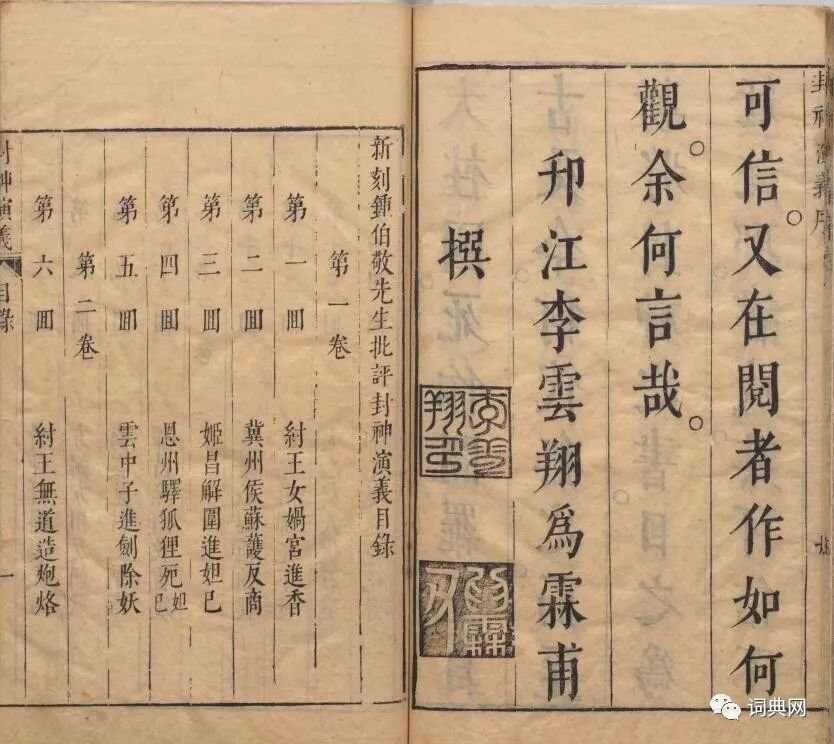 封神演義序
可信。又在閱者作如何
觀。余何言哉。
邗江李雲翔爲霖甫
撰
李雲翔印
新刻鍾伯敬先生批評封神演義目錄
第一卷
第一囬 紂王女媧宮進香
第二囬 冀州侯蘇護反商
第三囬 姬昌解圍進妲己
第四囬 恩州驛狐狸死妲己
第五囬 雲中子進劍除妖
第二卷
第六囬 紂王無道造炮烙
封神演義 目錄 一
词典网